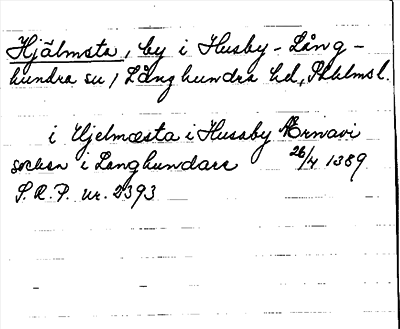 Hjälmsta, by i Husby-Lång-
hundra sn, Långhundra hd, Sthlms l.
i Hjelmæsta i Husaby Ærnavi
socken i Langhundare 26/4 1389
S.R.P. nr. 2393